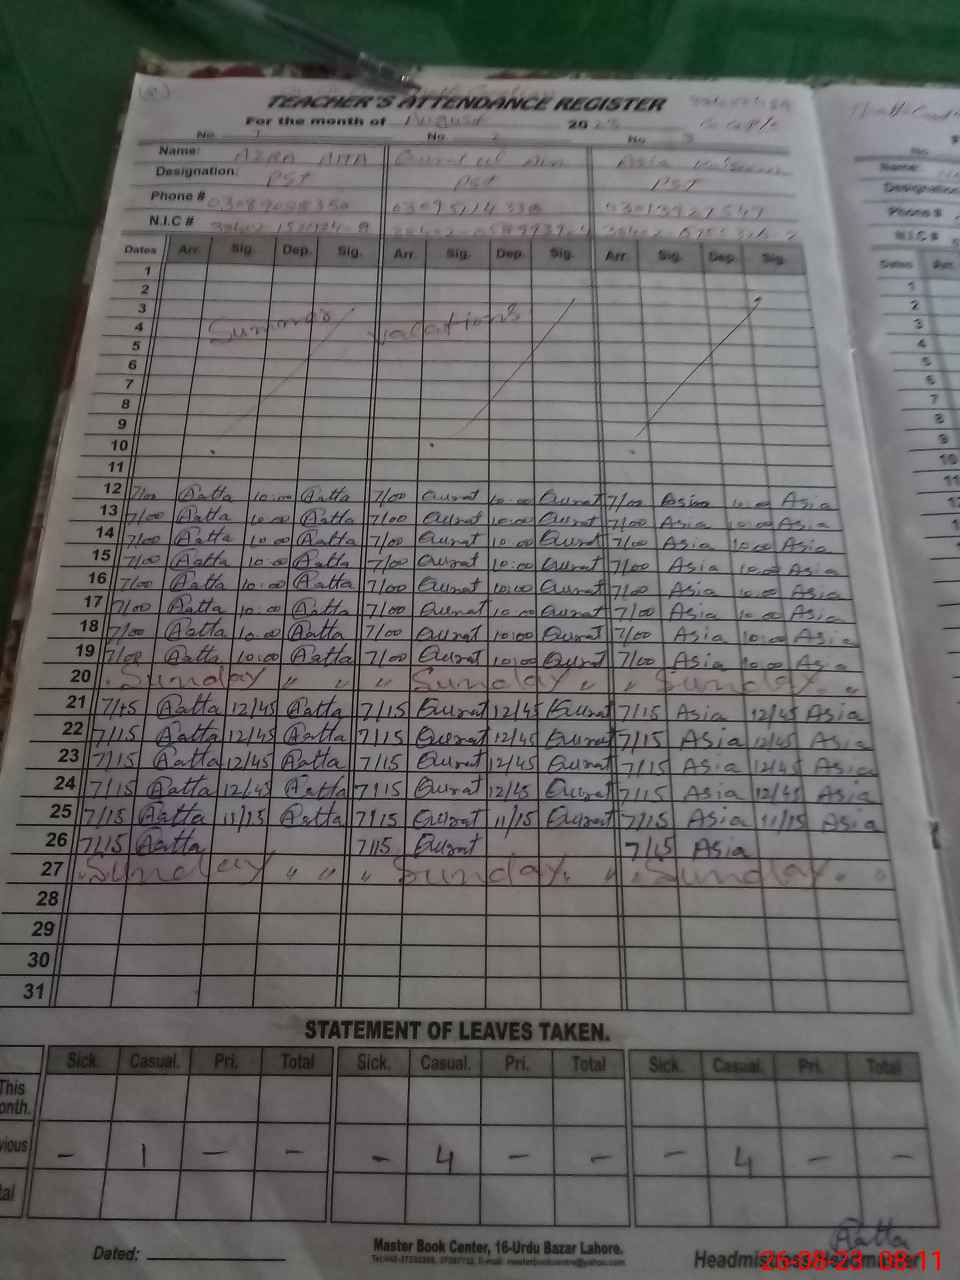 TEACHER'S ATTENDANCE REGISTER
For the month of August 2023
No. 1 No. 2 No 3
Name: AZRA ATTA Qurat ul Ain Asia
Designation. PST PST PST
Phone #
N.I.C #
Dates Arr. Sig. Dep. Sig. Arr. Sig. Dep. Sig. Arr. Sig. Dep. Sig.
1
2
3
4 Summer vacations
5
6
7
8
9
10
11
12 7/00 Aatta 10:00 Aatta 7/00 Qurat 10:00 Qurat 7/00 Asia 10:00 Asia
13 7/00 Aatta 10:00 Aatta 7/00 Qurat 10:00 Qurat 7/00 Asia 10:00 Asia
14 7/00 Aatta 10:00 Aatta 7/00 Qurat 10:00 Qurat 7/00 Asia 10:00 Asia
15 7/00 Aatta 10:00 Aatta 7/00 Qurat 10:00 Qurat 7/00 Asia 10:00 Asia
16 7/00 Aatta 10:00 Aatta 7/00 Qurat 10:00 Qurat 7/00 Asia 10:00 Asia
17 7/00 Aatta 10:00 Aatta 7/00 Qurat 10:00 Qurat 7/00 Asia 10:00 Asia
18 7/00 Aatta 10:00 Aatta 7/00 Qurat 10:00 Qurat 7/00 Asia 10:00 Asia
19 7/00 Aatta 10:00 Aatta 7/00 Qurat 10:00 Qurat 7/00 Asia 10:00 Asia
20 Sunday " " " Sunday " " Sunday "
21 7/15 Aatta 12/45 Aatta 7/15 Qurat 12/45 Qurat 7/15 Asia 12/45 Asia
22 7/15 Aatta 12/45 Aatta 7/15 Qurat 12/45 Qurat 7/15 Asia 12/45 Asia
23 7/15 Aatta 12/45 Aatta 7/15 Qurat 12/45 Qurat 7/15 Asia 12/45 Asia
24 7/15 Aatta 12/45 Aatta 7/15 Qurat 12/45 Qurat 7/15 Asia 12/45 Asia
25 7/15 Aatta 11/15 Aatta 7/15 Qurat 11/15 Qurat 7/15 Asia 11/15 Asia
26 7/15 Aatta 7/15 Qurat 7/15 Asia
27 Sunday " " " Sunday " " Sunday " "
28
29
30
31
STATEMENT OF LEAVES TAKEN.
Sick. Casual. Pri. Total Sick. Casual. Pri. Total Sick. Casual. Pri. Total
This
onth.
vious - 1 - - - 4 - - - 4 - -
tal
Aatta
Dated: Master Book Center, 16-Urdu Bazar Lahore. Headmistress/Headmaster
26-08-23 08:11
Name:
Designation
Phone #
N.I.C #
Dates Arr.
1
2
3
4
5
6
7
8
9
10
11